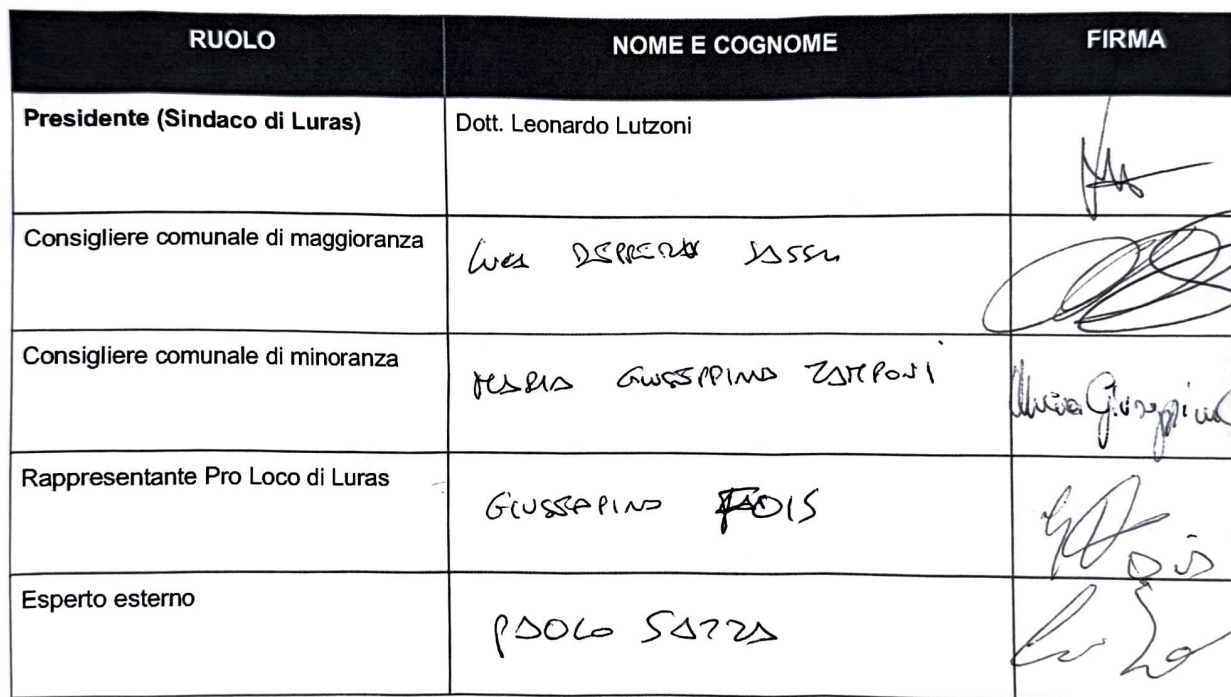 RUOLO NOME E COGNOME FIRMA
Presidente (Sindaco di Luras) Dott. Leonardo Lutzoni
Consigliere comunale di maggioranza Luca SASSU
Consigliere comunale di minoranza MARIA GIUSEPPINA ZAMPONI Maria Giuseppina
Rappresentante Pro Loco di Luras GIUSEPPINA FOIS
Esperto esterno PAOLO SAZZA